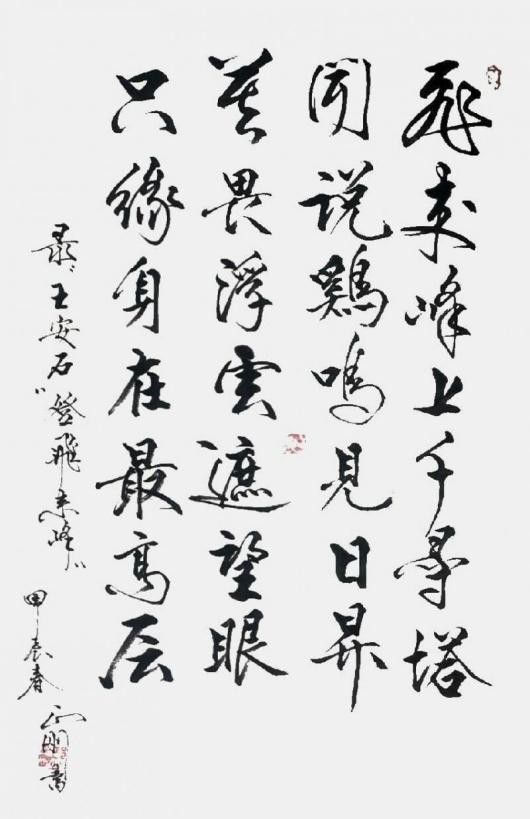 飛来峰上千尋塔
聞説鷄鳴見日昇
莫畏浮雲遮望眼
只緣身在最高层
录:王安石"登飛来峰"
甲辰春 書